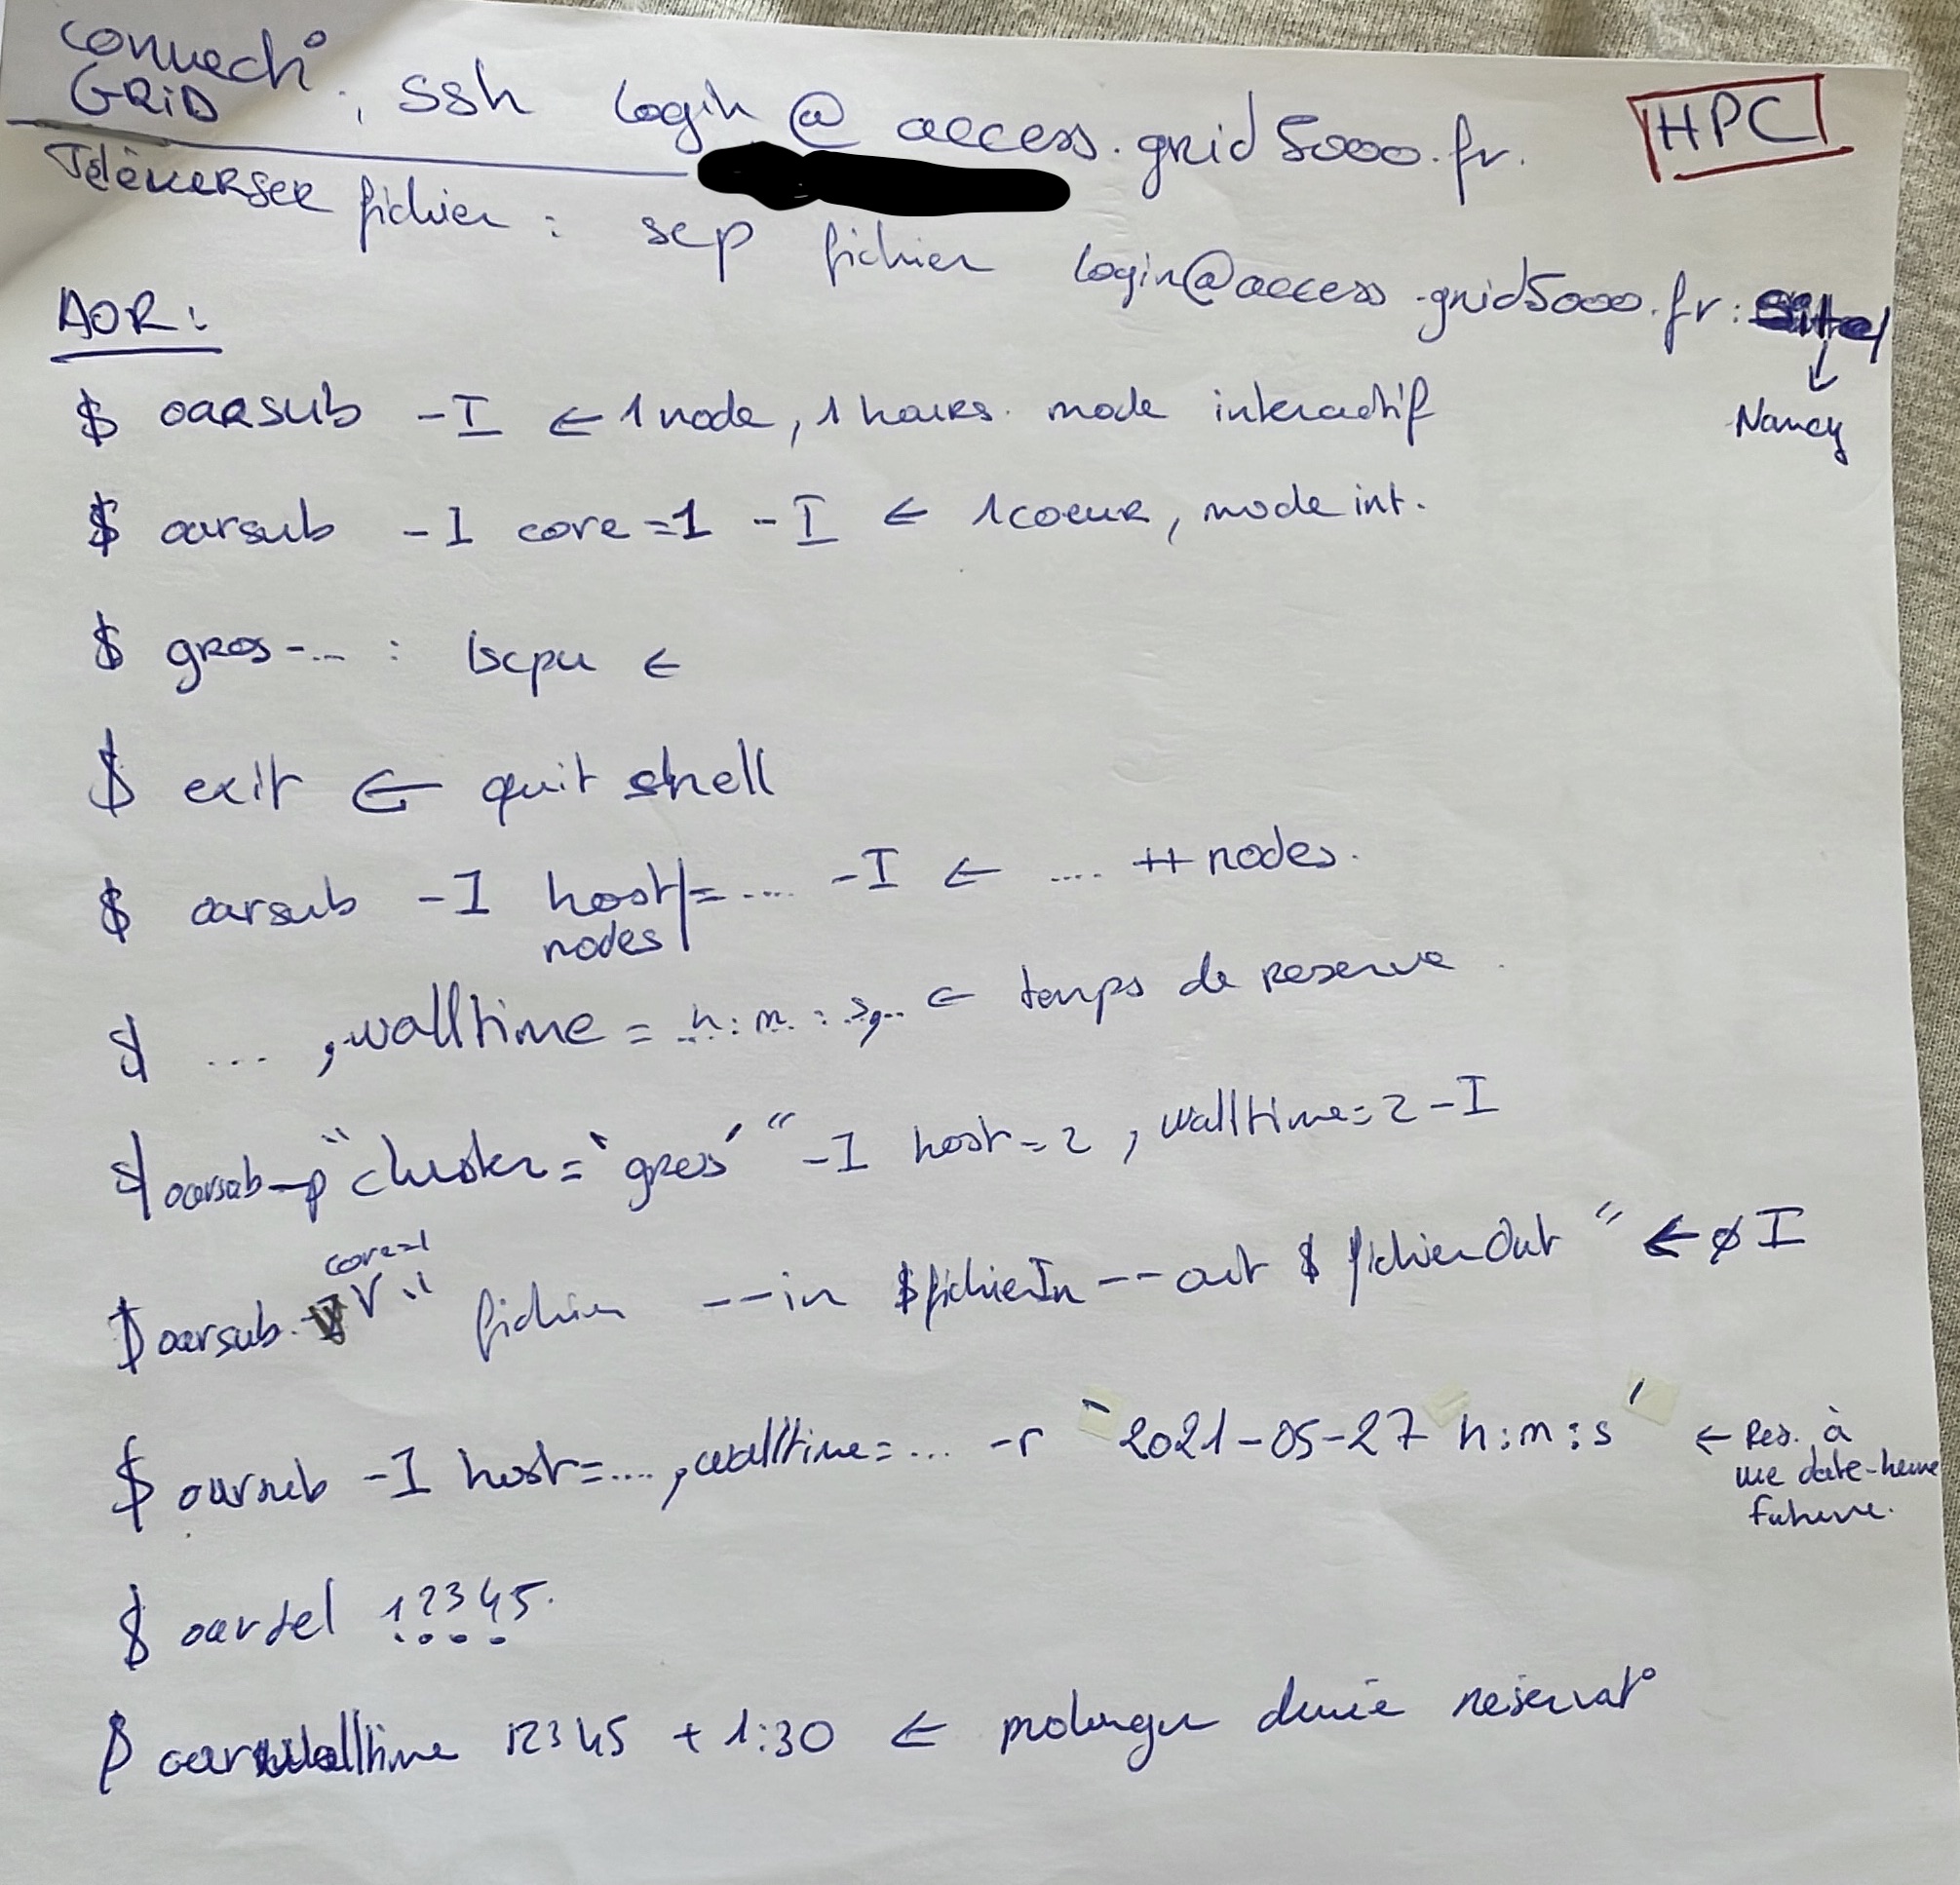 Connect° GRID : ssh login@access.grid5000.fr.
HPC
Téléverser fichier : scp fichier login@access.grid5000.fr:Site/
↓
Nancy
AOR :
$ oarsub -I ← 1 node, 1 hours. mode interactif
$ oarsub -l core=1 -I ← 1 coeur, mode int.
$ gros-... : lscpu ←
$ exit ← quit shell
$ oarsub -l host|= .... -I ← .... ++ nodes.
nodes
$ ... , walltime = h:m:s ← temps de reserve
$ oarsub -p "cluster='gros'" -l host=2, walltime=2 -I
core=1
$ oarsub -l " fichier --in $fichierIn --out $fichierOut " ← ø I
$ oarsub -l host=...., walltime=... -r '2021-05-27 h:m:s' ← Res. à
une date-heure
future.
$ oardel 12345.
$ oarwalltime 12345 +1:30 ← prolonger durée réservat°